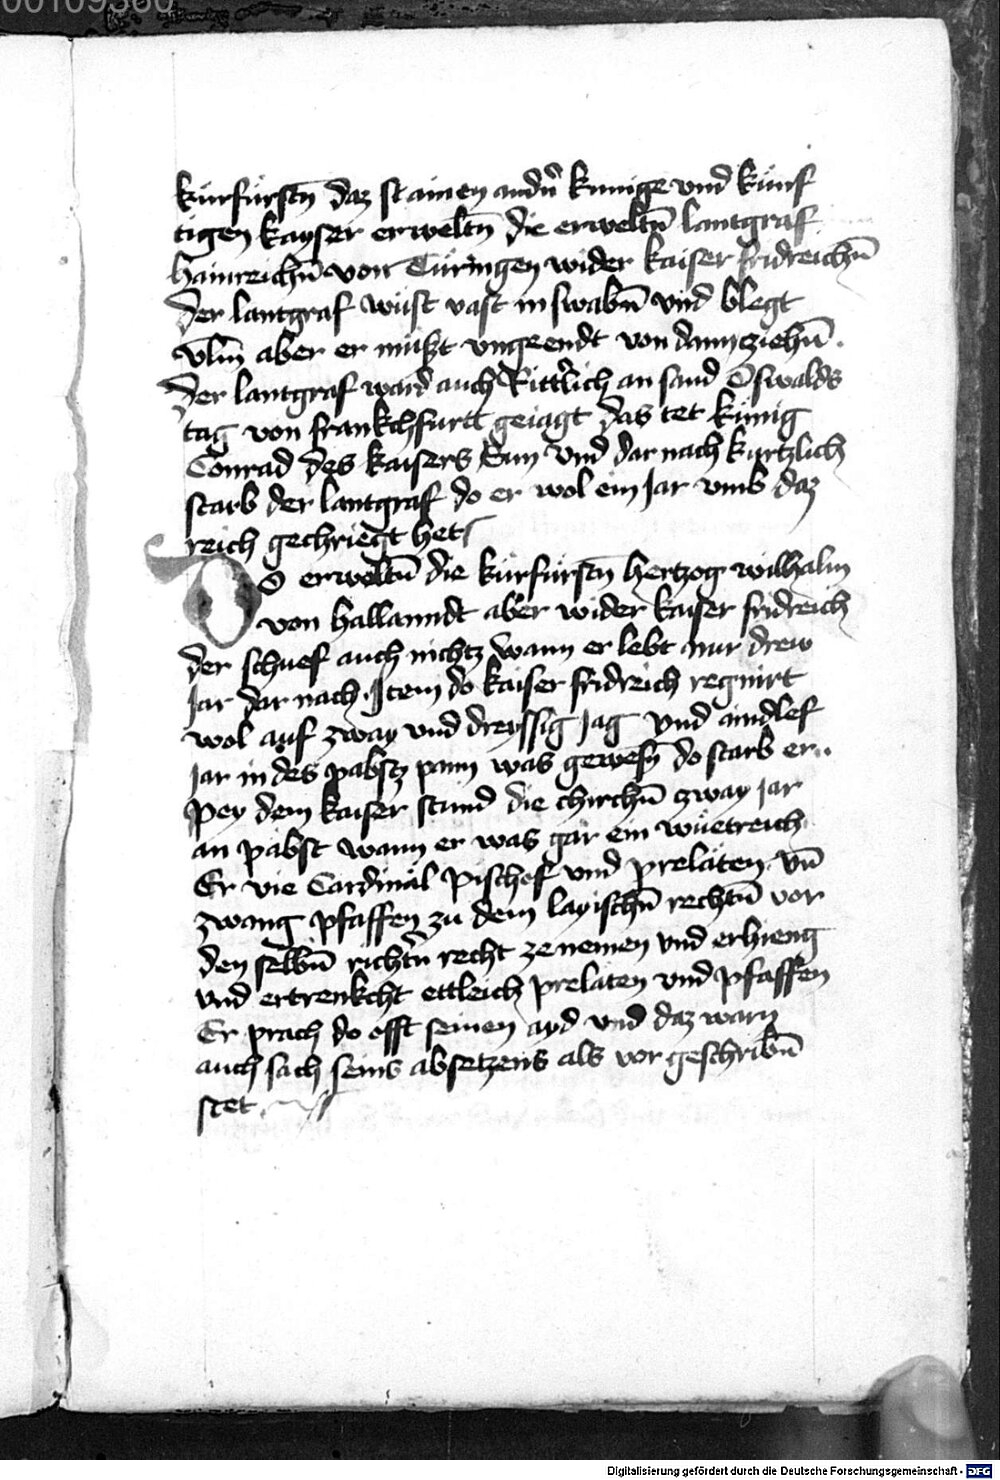 00109360
kürfürstn̄ daz si ainen andn̄ kunige vnd künf
tigen kayser erweltn̄ die erweltn̄ lantgraf
hainreichn̄ von Türingen wider kaiser fridreichn̄
Der lantgraf wüst vast in swabn̄ vnd blegt
vlm̄ aber er müszt vngeendt von dann ziehn̄.
Der lantgraf ward auch Rittrlich an sand Oswalds
tag von frankchfurtt geiagt das tet künig
Conrad des kaisers Sun vnd dar nach kurtzlich
starb der lantgraf do er wol ein Jar vmb daz
reich gechriegt het
Do erweltn̄ die kürfürstn̄ hertzog wilhalm
von hallanndt aber wider kaiser fridreich
der schuef auch nichtz wann er lebt nur drew
Jar dar nach. Item do kaiser fridreich regnirt
wol auf zway vnd dreyssig Jag vnd aindlef
Jar in des pabstz pann was gewesn̄ do starb er..
Pey dem kaiser stund die chirchn̄ zway Jar
an pabst wann er was gar ein wüetreich
Er vie Cardinäl Pischof vnd prelaten vn̄
zwang pfaffen zu dem layischn̄ rechtn̄ vor
den selbn̄ richtrn̄ recht zenemen vnd erhieng
vnd ertrenkcht ettleich prelaten vnd pfaffen
Er prach do offt seinen ayd vnd daz warn
auch sach seins absetzens als vor geschribn̄
stet.
Digitalisierung gefördert durch die Deutsche Forschungsgemeinschaft - DFG